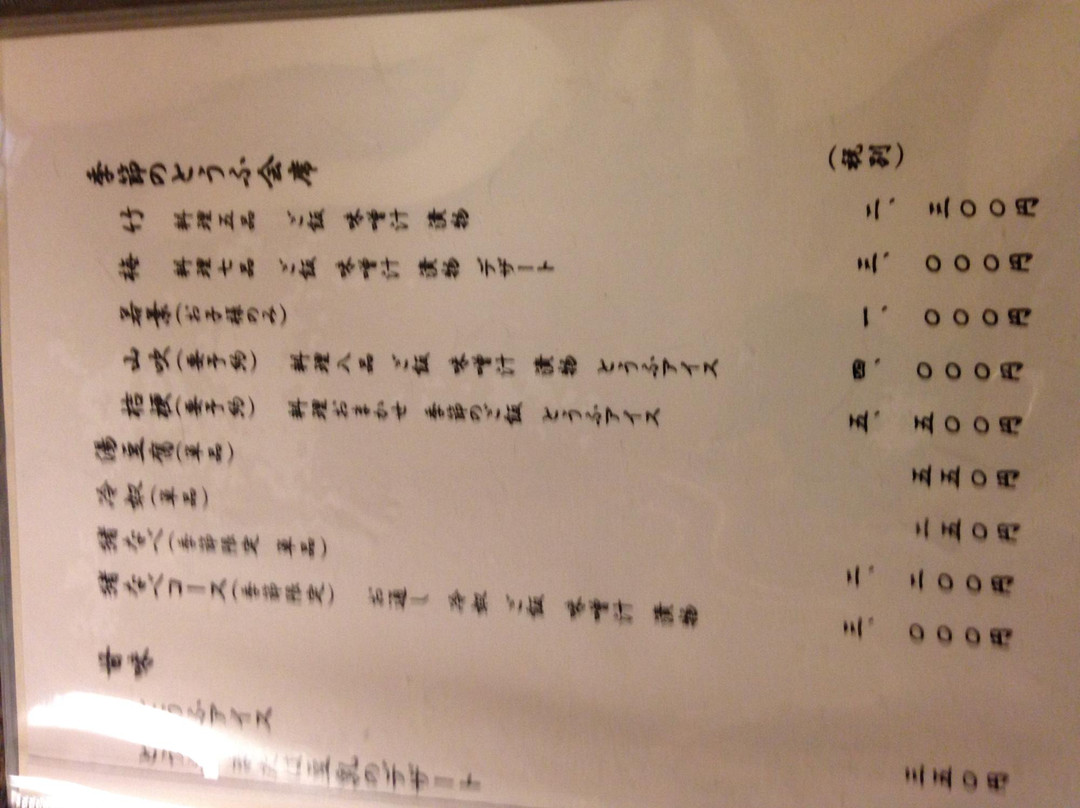 季節のとうふ会席 (税別)
竹 料理五品 ご飯 味噌汁 漬物 二、三〇〇円
梅 料理七品 ご飯 味噌汁 漬物 デザート 三、〇〇〇円
若葉(お子様のみ) 一、〇〇〇円
山吹(要予約) 料理八品 ご飯 味噌汁 漬物 とうふアイス 四、〇〇〇円
桔梗(要予約) 料理おまかせ 季節のご飯 とうふアイス 五、五〇〇円
湯豆腐(単品) 五五〇円
冷奴(単品) 二五〇円
猪なべ(季節限定 単品) 二、二〇〇円
猪なべコース(季節限定) お通し 冷奴 ご飯 味噌汁 漬物 三、〇〇〇円
甘味
とうふアイス
豆乳のデザート 三五〇円